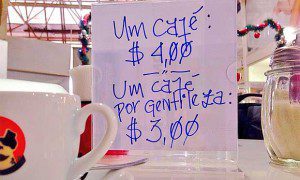 Um café:
$ 4,00
_"_
Um café
por gentileza:
$ 3,00